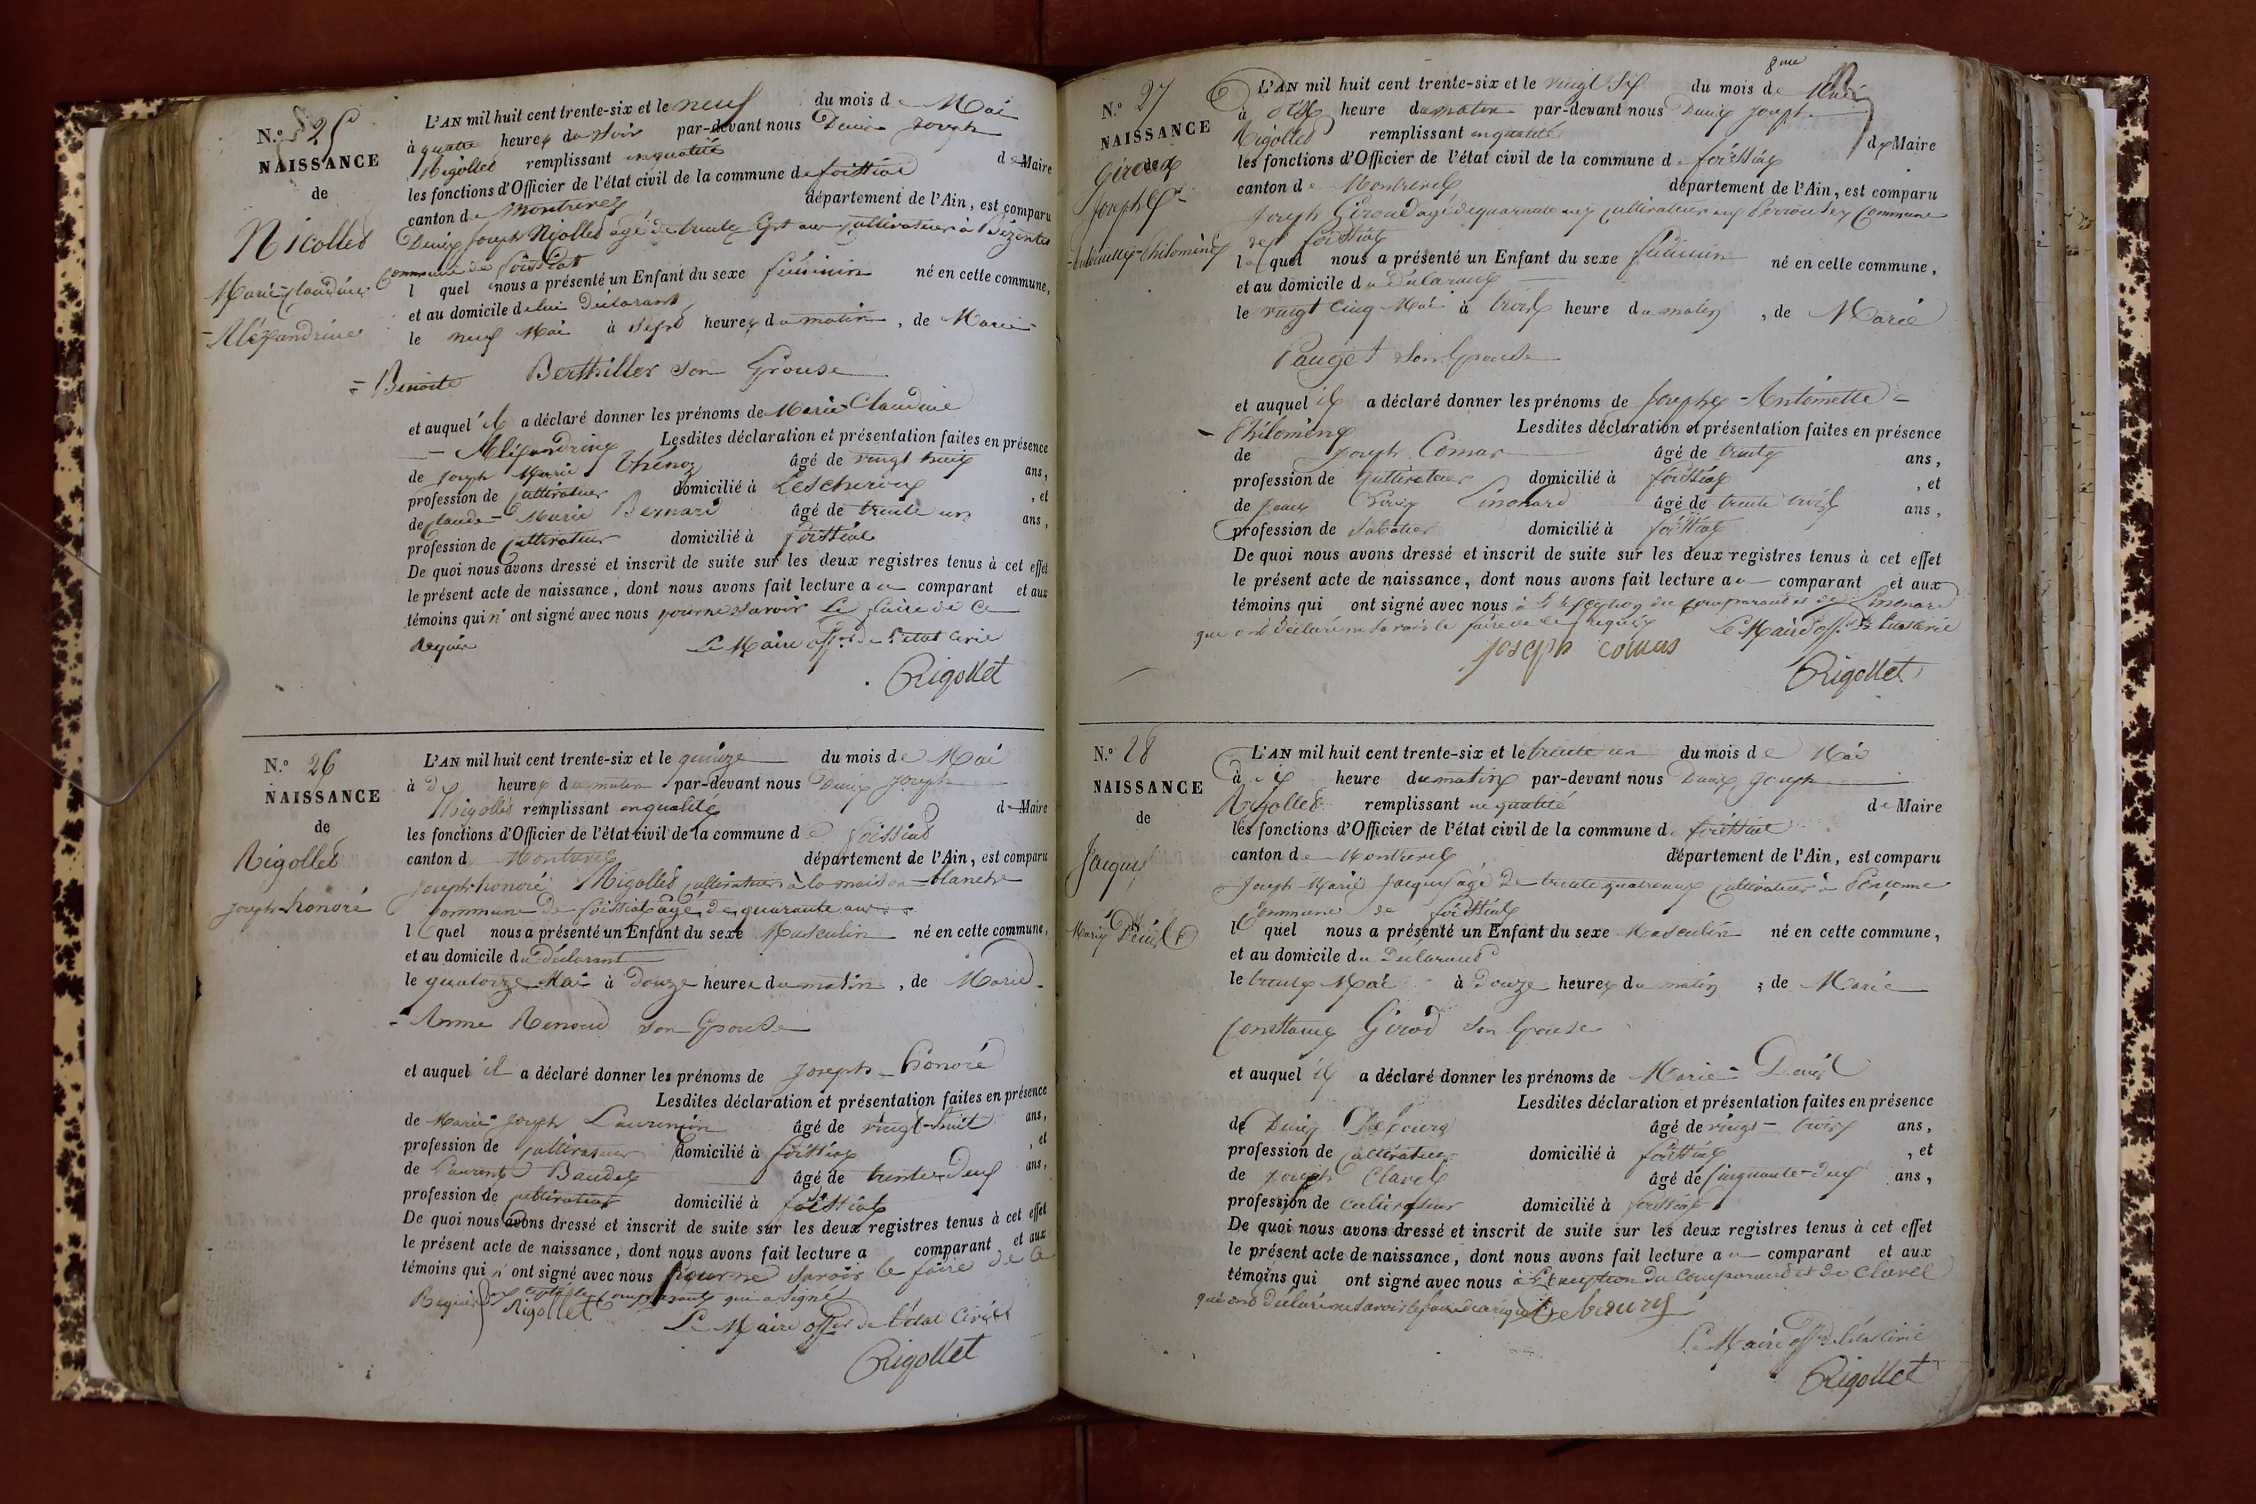 N.º 25
NAISSANCE
de
Nicolled
Marie-Claudine
-Aléxandrine
L'AN mil huit cent trente-six et le neuf du mois de Mai
à quatre heures du soir par-devant nous Denis Joseph
Rigollet remplissant en qualité de Maire
les fonctions d'Officier de l'état civil de la commune de foissiat
canton de Montrevel département de l'Ain, est comparu
Denis Joseph Nicolled agé de trente sept ans cultivateur à
Commune de foissiat
lequel nous a présenté un Enfant du sexe féminin né en cette commune,
et au domicile de lui déclarant
le neuf Mai à sept heures du matin, de Marie-
=Benoite Berthiller son Epouse
et auquel il a déclaré donner les prénoms de Marie Claudine
-Aléxandrine Lesdites déclaration et présentation faites en présence
de Joseph Marie Thénoz âgé de vingt huit ans,
profession de cultivateur domicilié à Lescheroux, et
de Claude-Marie Bernard âgé de trente un ans,
profession de cultivateur domicilié à foissiat
De quoi nous avons dressé et inscrit de suite sur les deux registres tenus à cet effet
le présent acte de naissance, dont nous avons fait lecture au comparant et aux
témoins qui n'ont signé avec nous pour ne savoir le faire de ce
Requis Le Maire off.er de l'état civil
Rigollet
N.º 26
NAISSANCE
de
Rigolled
Joseph-honoré
L'AN mil huit cent trente-six et le quinze du mois de Mai
à heures du matin par-devant nous Denis Joseph
Rigolled remplissant en qualité de Maire
les fonctions d'Officier de l'état civil de la commune de foissiad
canton de Montrevel département de l'Ain, est comparu
Joseph-honoré Rigolled cultivateur à la maison-blanche
Commune de foissiat agé de quarante ans
lequel nous a présenté un Enfant du sexe Masculin né en cette commune,
et au domicile du déclarant
le quatorze Mai à douze heures du matin, de Marie-
-Anne Renoud son Epouse
et auquel il a déclaré donner les prénoms de Joseph-honoré
Lesdites déclaration et présentation faites en présence
de Marie Joseph Laurencin âgé de vingt-huit ans,
profession de cultivateur domicilié à foissiat, et
de Laurent Baudet âgé de trente-deux ans,
profession de cultivateur domicilié à foissiat
De quoi nous avons dressé et inscrit de suite sur les deux registres tenus à cet effet
le présent acte de naissance, dont nous avons fait lecture a comparant et aux
témoins qui n'ont signé avec nous pour ne savoir le faire de ce
Requis excepté le comparant qui a signé
Rigollet Le Maire offer de l'état civil
Rigollet
N.º 27
NAISSANCE
Giroud
Josephe
-Antoinette-Philomène
L'AN mil huit cent trente-six et le vingt six du mois de Mai
à dix heure du matin par-devant nous Denis Joseph
Rigolled remplissant en qualité de Maire
les fonctions d'Officier de l'état civil de la commune de foissiat
canton de Montrevel département de l'Ain, est comparu
Joseph Giroud agé de quarante ans cultivateur aux Commune
de foissiat
lequel nous a présenté un Enfant du sexe féminin né en cette commune,
et au domicile du déclarant
le vingt cinq Mai à trois heure du matin, de Marie
Pauget son Epouse
et auquel il a déclaré donner les prénoms de Josephe-Antoinette-
-Philomène Lesdites déclaration et présentation faites en présence
de Joseph Comas âgé de trente ans,
profession de cultivateur domicilié à foissiat, et
de Louis Linonard âgé de trente trois ans,
profession de Sabotier domicilié à foissiat
De quoi nous avons dressé et inscrit de suite sur les deux registres tenus à cet effet
le présent acte de naissance, dont nous avons fait lecture au comparant et aux
témoins qui ont signé avec nous à l'exception du comparant et de Linonard
que ont déclaré ne savoir le faire de ce requis Le Maire off. de l'état civil
joseph comas
Rigollet
N.º 28
NAISSANCE
de
Jacques
Marie Denis
L'AN mil huit cent trente-six et le trente un du mois de Mai
à six heure du matin par-devant nous Denis Joseph
Rigolled remplissant en qualité de Maire
les fonctions d'Officier de l'état civil de la commune de foissiat
canton de Montrevel département de l'Ain, est comparu
Joseph-Marie Jacques agé de trente quatre ans cultivateur à
Commune de foissiat
lequel nous a présenté un Enfant du sexe Masculin né en cette commune,
et au domicile du déclarant
le trente Mai à douze heures du matin, de Marie
Constance Girod son Epouse
et auquel il a déclaré donner les prénoms de Marie-Denis
Lesdites déclaration et présentation faites en présence
de Denis Debourg âgé de vingt-trois ans,
profession de cultivateur domicilié à foissiat, et
de Joseph Clavel âgé de cinquante-deux ans,
profession de cultivateur domicilié à foissiat
De quoi nous avons dressé et inscrit de suite sur les deux registres tenus à cet effet
le présent acte de naissance, dont nous avons fait lecture au comparant et aux
témoins qui ont signé avec nous à l'exception du comparant et de Clavel
qui ont déclaré ne savoir le faire de ce requis Debourg
Le Maire off. de l'état civil
Rigollet